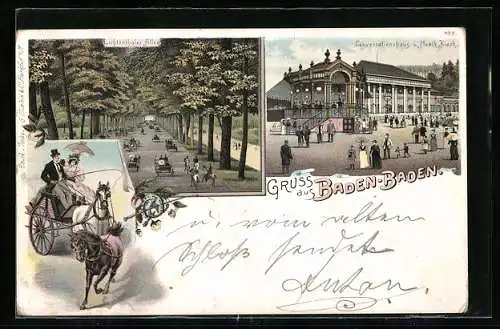 Lichtenthaler Allee
Conversationshaus u. Musik Kiosk
GRUSS aus BADEN-BADEN.
u. vom alten
Schloß sendet
Anton.